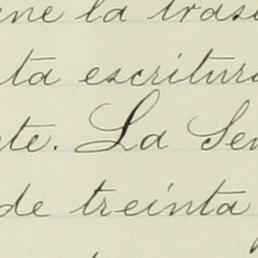 ne la tras
ta escritura
te. La Sen
de treinta